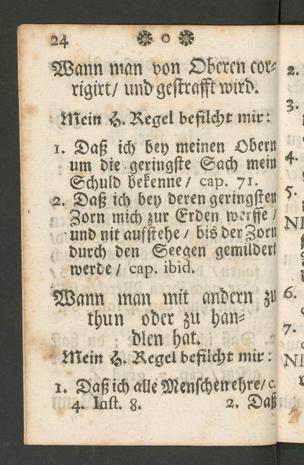 24
Wann man von Oberen cor-
rigirt/ und gestrafft wird.
Mein H. Regel befilcht mir:
1. Daß ich bey meinen Obern
um die geringste Sach mein
Schuld bekenne/ cap. 71.
2. Daß ich bey deren geringsten
Zorn mich zur Erden werffe/
und nit aufstehe/ bis der Zorn
durch den Seegen gemildert
werde/ cap. ibid.
Wann man mit andern zu
thun oder zu han-
dlen hat.
Mein H. Regel befilcht mir:
1. Daß ich alle Menschen ehre/ c.
4. Inst. 8.
2. Daß
2.
3.
4.
5.
NI
6.
7.
NI